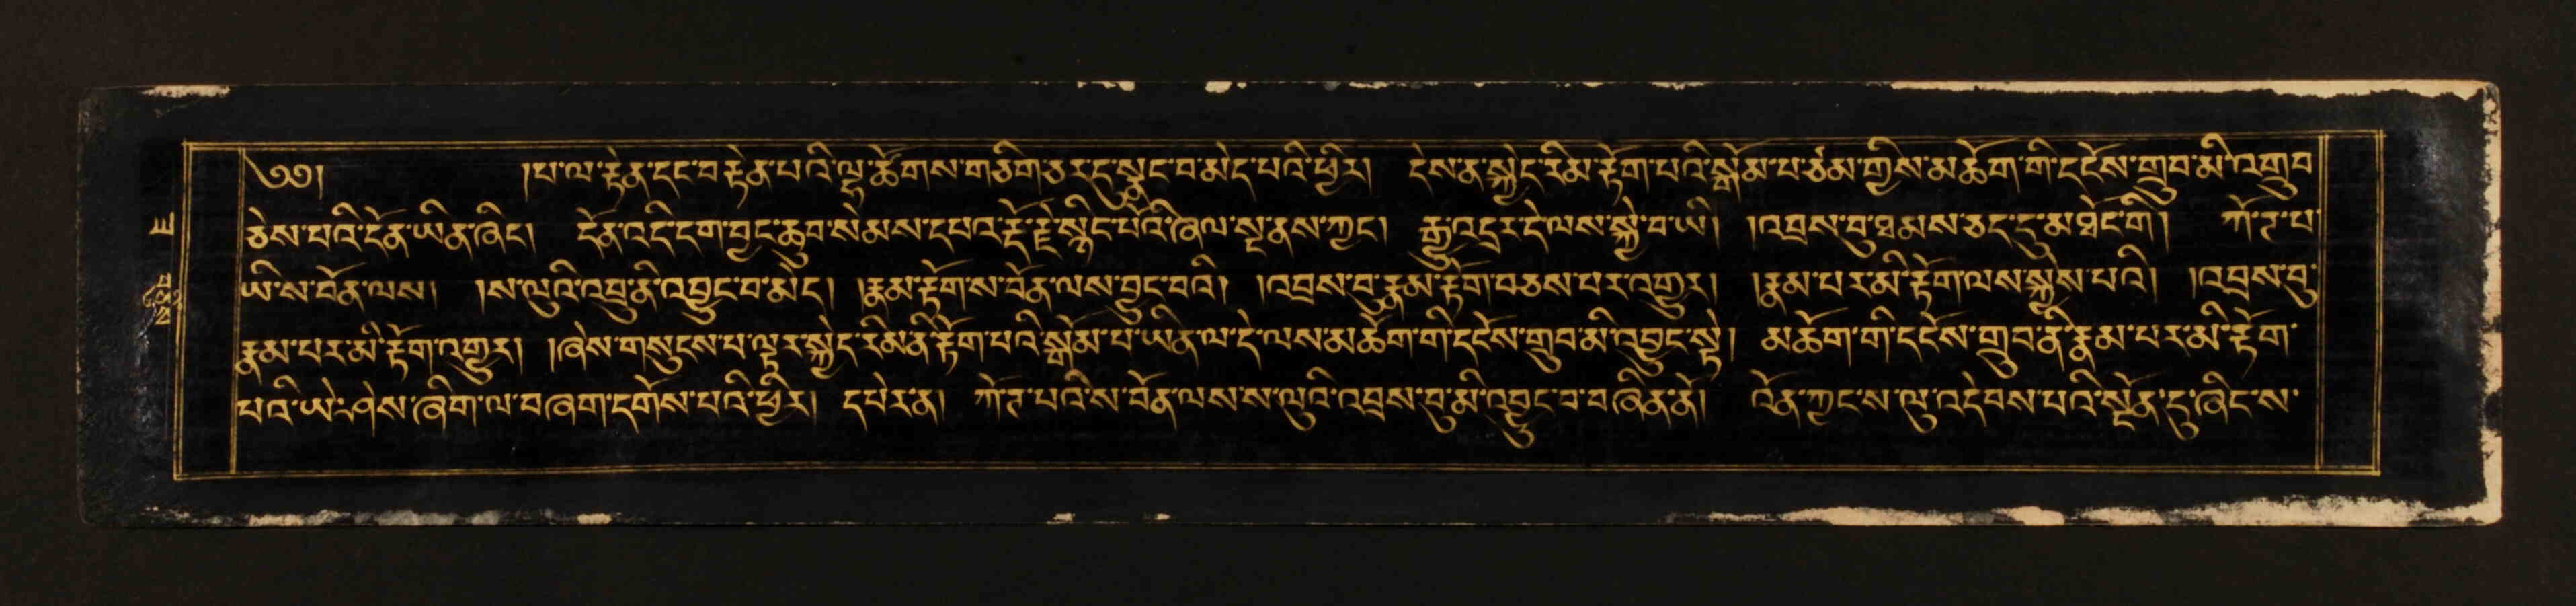 ༄༅། །པ་ལ་རྟེན་དང་བརྟེན་པའི་ལྷ་ཚོགས་གཅིག་ཅར་དུ་སྣང་བ་མེད་པའི་ཕྱིར། དེས་ན་སྐྱེད་རིམ་རྟོག་པའི་སྒོམ་པ་ཙམ་གྱིས་མཆོག་གི་དངོས་གྲུབ་མི་འགྲུབ
ཅེས་པའི་དོན་ཡིན་ཞིང། དོན་འདི་དག་བྱང་ཆུབ་སེམས་དཔའ་རྡོ་རྗེ་སྙིང་པོའི་ཞལ་སྔ་ནས་ཀྱང། རྒྱུ་འདྲར་དེ་ལས་སྐྱེ་བ་ཡི། །འབྲས་བུ་ཐམས་ཅད་དུ་མཐོང་གི། ཀོ་ཊ་པ་
ཡི་ས་བོན་ལས། །ས་ལུའི་འབྲུ་ནི་འབྱུང་བ་མེད། །རྣམ་རྟོག་ས་བོན་ལས་བྱུང་བའི། །འབྲས་བུ་རྣམ་རྟོག་བཅས་པར་འགྱུར། །རྣམ་པར་མི་རྟོག་ལས་སྐྱེས་པའི། །འབྲས་བུ་
རྣམ་པར་མི་རྟོག་འགྱུར། །ཞེས་གསུངས་པ་ལྟར་སྐྱེད་རིམ་ནི་རྟོག་པའི་སྒོམ་པ་ཡིན་ལ་དེ་ལས་མཆོག་གི་དངོས་གྲུབ་མི་འབྱུང་སྟེ། མཆོག་གི་དངོས་གྲུབ་ནི་རྣམ་པར་མི་རྟོག་
པའི་ཡེ་ཤེས་ཞིག་ལ་བཞག་དགོས་པའི་ཕྱིར། དཔེར་ན། ཀོ་ཊ་པའི་ས་བོན་ལས་ས་ལུའི་འབྲས་བུ་མི་འབྱུང་བ་བཞིན་ནོ། འོན་ཀྱང་ས་ལུ་འདེབས་པའི་སྔོན་དུ་ཞིང་ས་